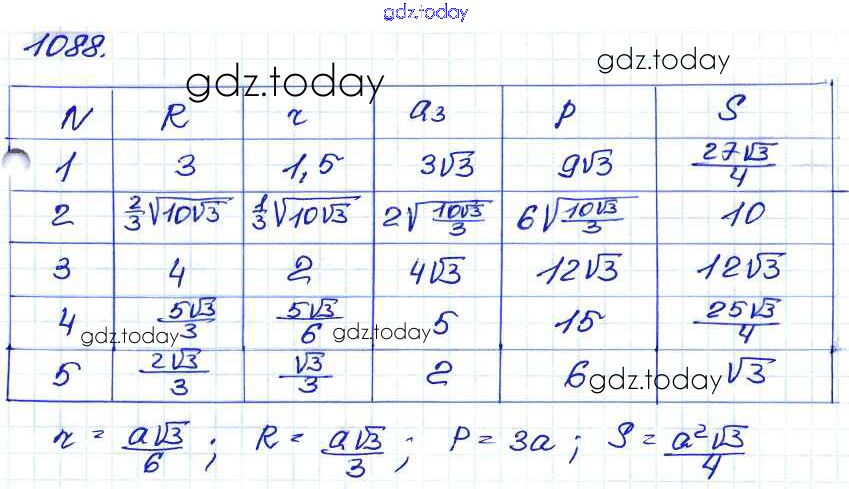 gdz.today
1088.
gdz.today
gdz.today
N R r a₃ P S
1 3 1,5 3√3 9√3 27√3/4
2 2/3√(10√3) 1/3√(10√3) 2√(10√3/3) 6√(10√3/3) 10
3 4 2 4√3 12√3 12√3
4 5√3/3 5√3/6 5 15 25√3/4
gdz.today gdz.today
5 2√3/3 √3/3 2 6 √3
gdz.today
r = a√3/6 ; R = a√3/3 ; P = 3a ; S = a²√3/4